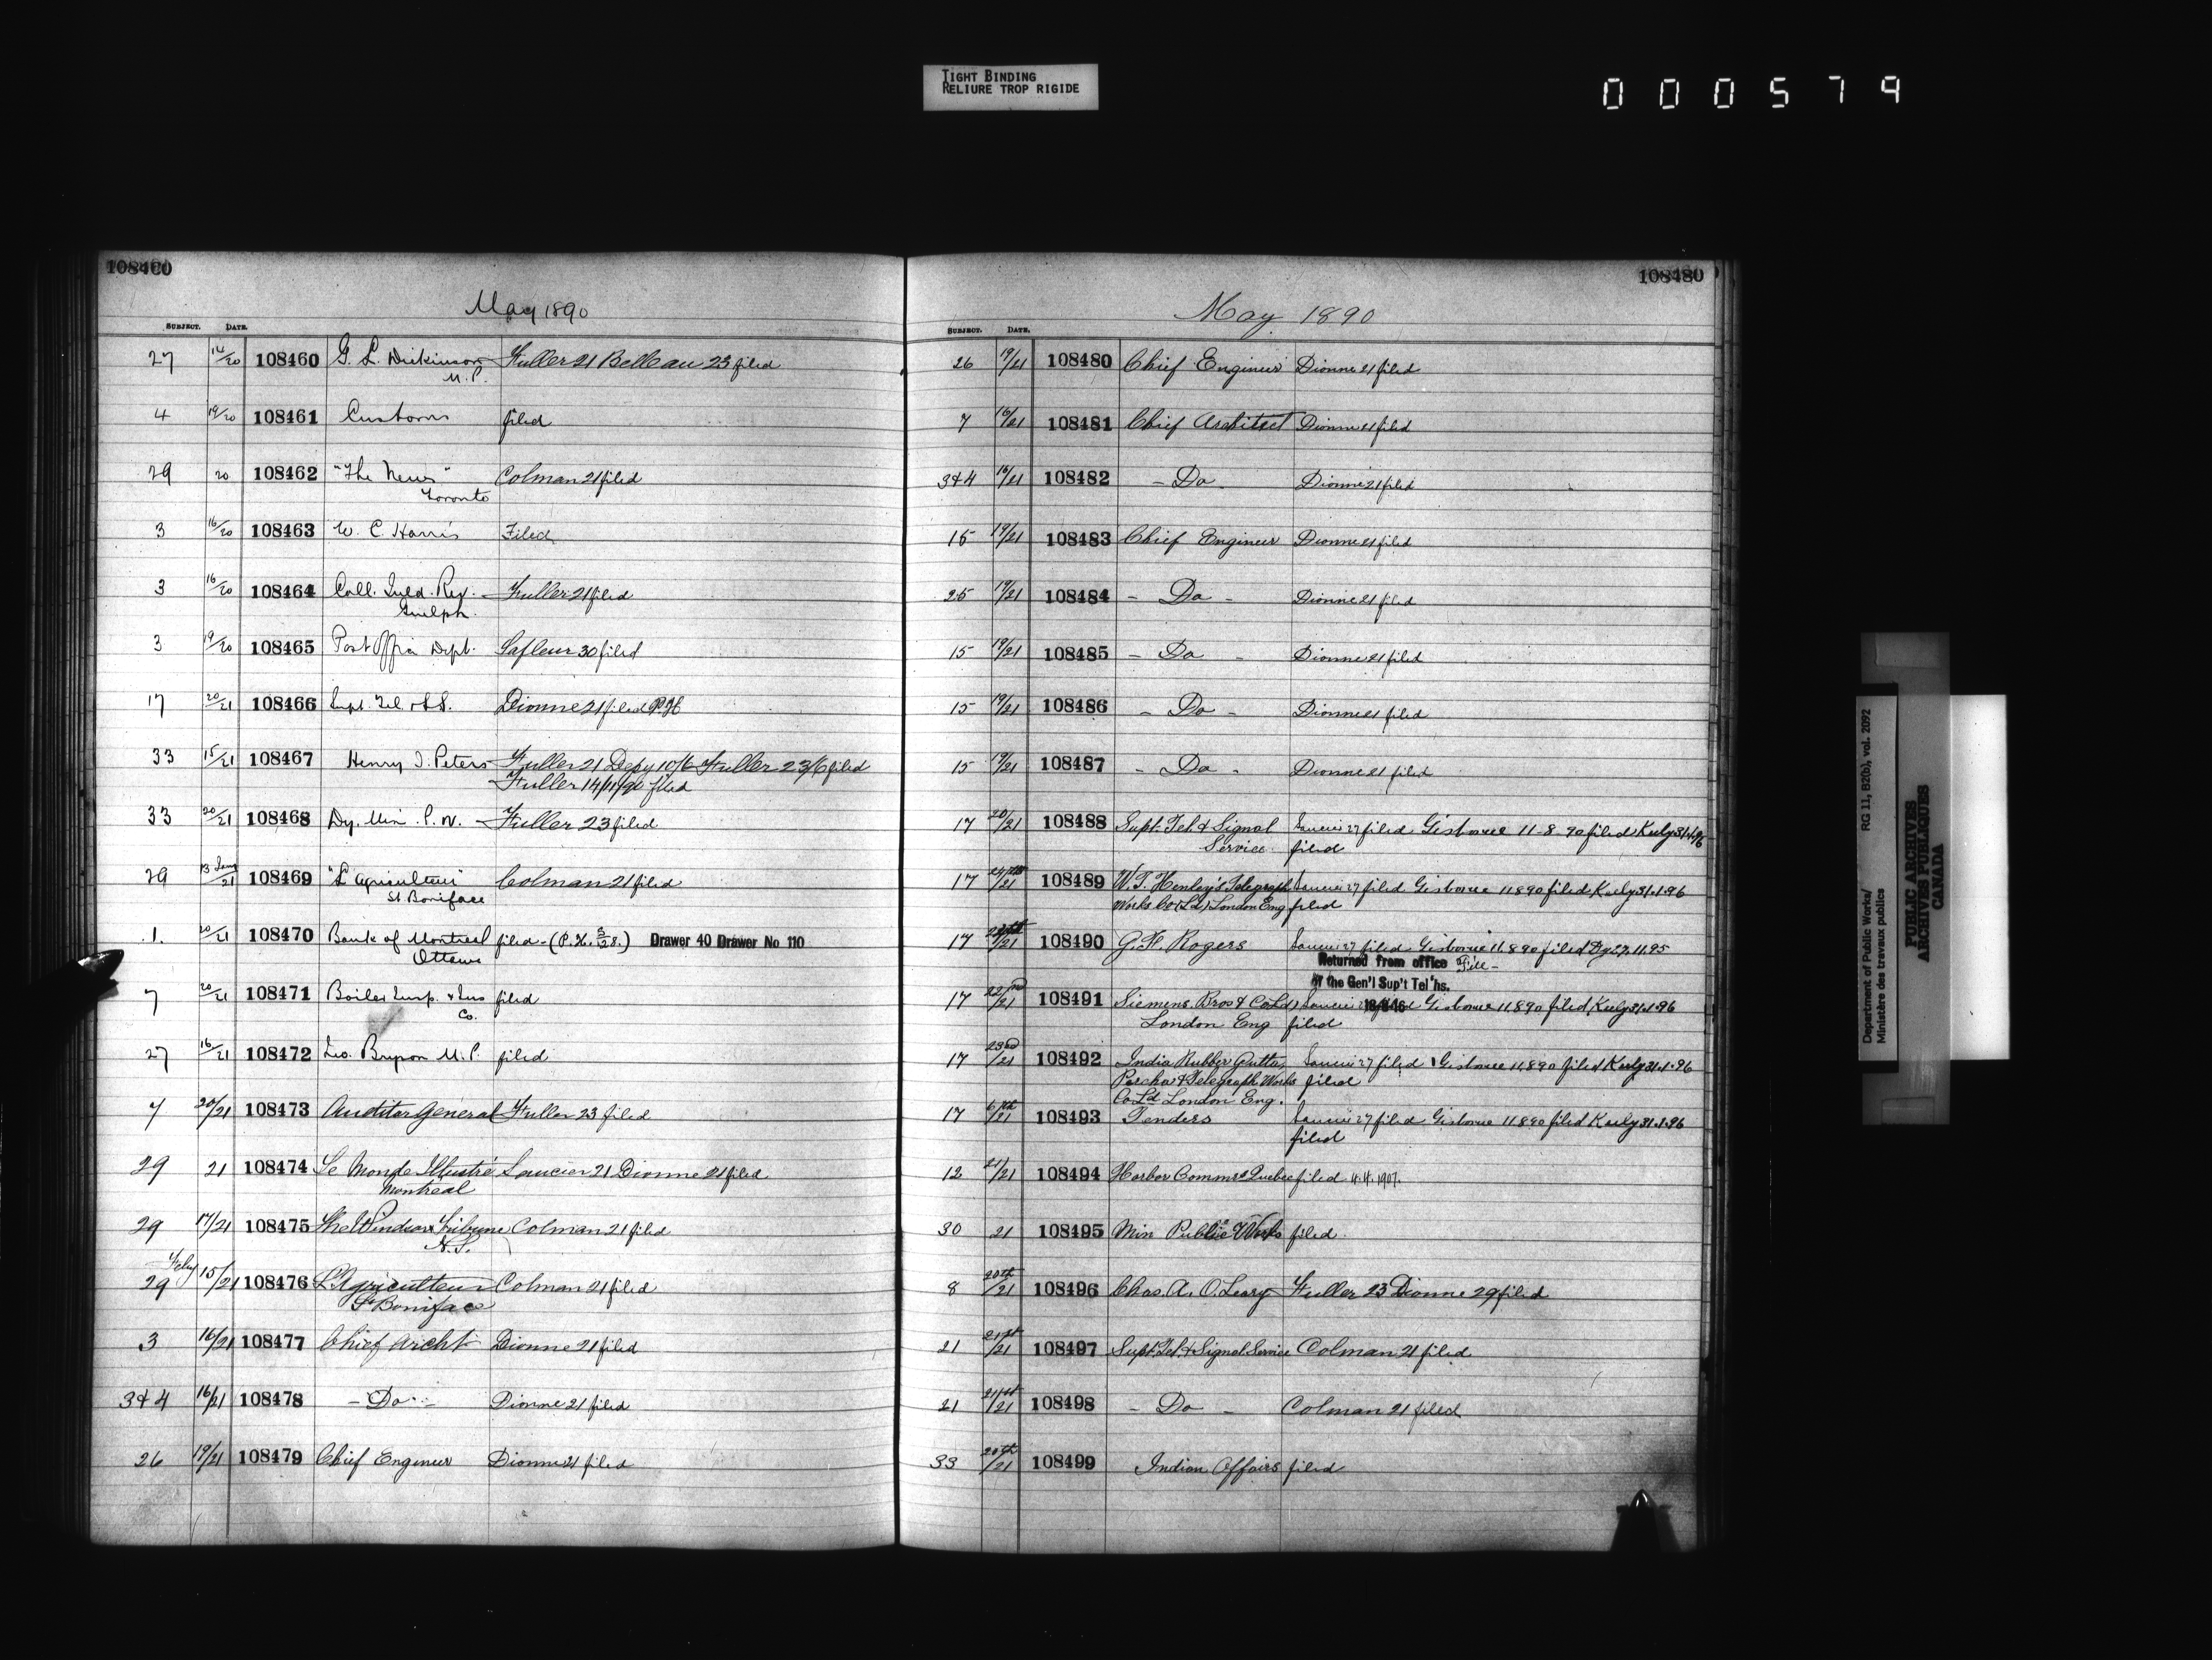 TIGHT BINDING
RELIURE TROP RIGIDE
000579
108460
May 1890
SUBJECT. DATE.
27 14/20 108460 G. L. Dickinson Fuller 21 Belleau 23 filed
M.P.
4 19/20 108461 Customs filed
29 20 108462 "The News" Colman 21 filed
Toronto
3 16/20 108463 W. C. Harris Filed
3 16/20 108464 Coll. Inld. Rev. Fuller 21 filed
Guelph
3 19/20 108465 Post Office Dept. Lafleur 30 filed
17 20/21 108466 Supt. Tel. & S.S. Dionne 21 filed
33 15/21 108467 Henry J. Peters Fuller 21 Depy 10/6 Fuller 23/6 filed
Fuller 14/11/90 filed
33 20/21 108468 Dy. Min. P. W. Fuller 23 filed
29 13 /21 108469 "L'Agriculteur" Colman 21 filed
St Boniface
1. 20/21 108470 Bank of Montreal filed - (P. H. 5/28.) Drawer 40 Drawer No 110
Ottawa
7 20/21 108471 Boiler Insp. & Ins filed
Co.
27 16/21 108472 Bryson M.P. filed
7 20/21 108473 Auditor General Fuller 23 filed
29 21 108474 Le Monde Illustré Saucier 21 Dionne 21 filed
Montreal
29 17/21 108475 The Windsor Tribune Colman 21 filed
N.S.
Feby
29 15/21 108476 L'Agriculteur Colman 21 filed
St Boniface
3 16/21 108477 Chief Archt Dionne 21 filed
3 & 4 16/21 108478 - Do - Dionne 21 filed
26 19/21 108479 Chief Engineer Dionne 21 filed
108480
May 1890
SUBJECT. DATE.
26 19/21 108480 Chief Engineer Dionne 21 filed
7 16/21 108481 Chief Architect Dionne 21 filed
3 & 4 16/21 108482 - Do - Dionne 21 filed
15 19/21 108483 Chief Engineer Dionne 21 filed
25 19/21 108484 - Do - Dionne 21 filed
15 19/21 108485 - Do - Dionne 21 filed
15 19/21 108486 - Do - Dionne 21 filed
15 19/21 108487 - Do - Dionne 21 filed
17 20/21 108488 Supt. Tel. & Signal Saucier 27 filed Gisborne 11-8-90 filed Keely 31.1.96
Service. filed
17 /21 108489 W. T. Henley's Telegraph Saucier 27 filed Gisborne 11.8.90 filed Keely 31.1.96
Works Co (Ld) London Eng filed
17 /21 108490 G. H. Rogers Saucier 27 filed Gisborne 11.8.90 filed 11.95
Returned from office File -
of the Gen'l Sup't Tel'hs.
17 22nd/21 108491 Siemens Bros & Co Ld Saucier filed Gisborne 11.8.90 filed Keely 31.1.96
London Eng filed
17 23rd/21 108492 India Rubber Gutta Saucier 27 filed Gisborne 11.8.90 filed Keely 31.1.96
Percha & Telegraph Works filed
Co Ld London Eng.
17 6th/21 108493 Tenders Saucier 27 filed Gisborne 11.8.90 filed Keely 31.1.96
filed
12 21/21 108494 Harbor Commrs Quebec filed 4.4.1907.
30 21 108495 Min Public Works filed.
8 20th/21 108496 Chas. A. O. Leary Fuller 23 Dionne 29 filed
21 21st/21 108497 Supt. Tel. & Signal Service Colman 21 filed
21 21st/21 108498 - Do - Colman 21 filed
33 20th/21 108499 Indian Affairs filed
Department of Public Works/ RG 11, B2(b), vol. 2092
Ministère des travaux publics
PUBLIC ARCHIVES
ARCHIVES PUBLIQUES
CANADA